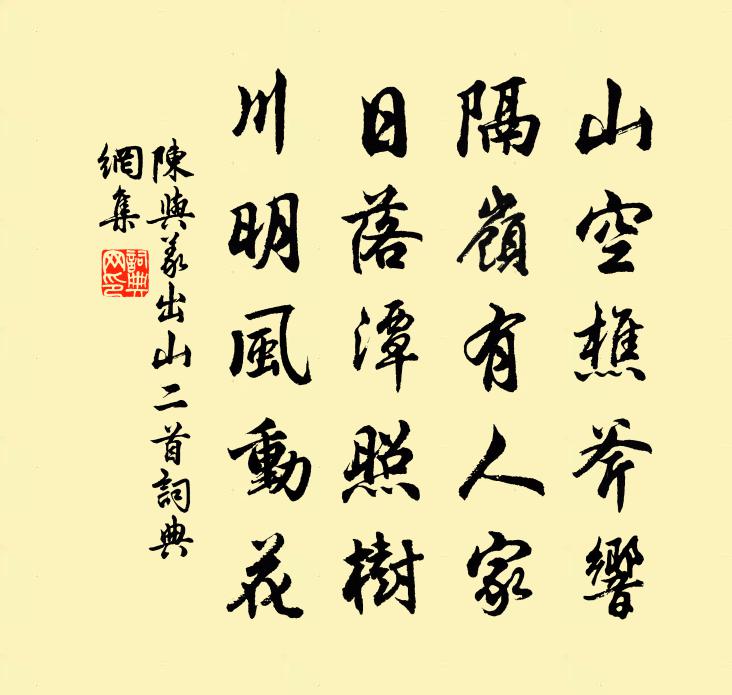 山空樵斧響
隔嶺有人家
日落潭照樹
川明風動花
陳與義出山二首詞典
網集
詞典
网印